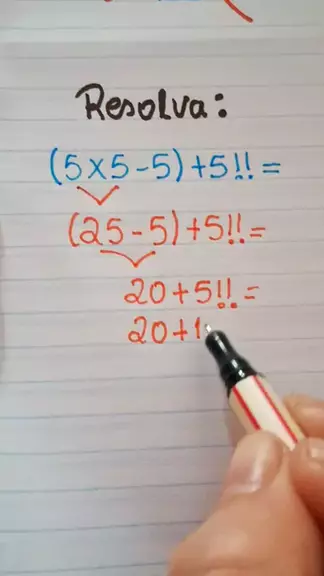 Resolva:
(5×5-5)+5!!=
(25-5)+5!!=
20+5!!=
20+1